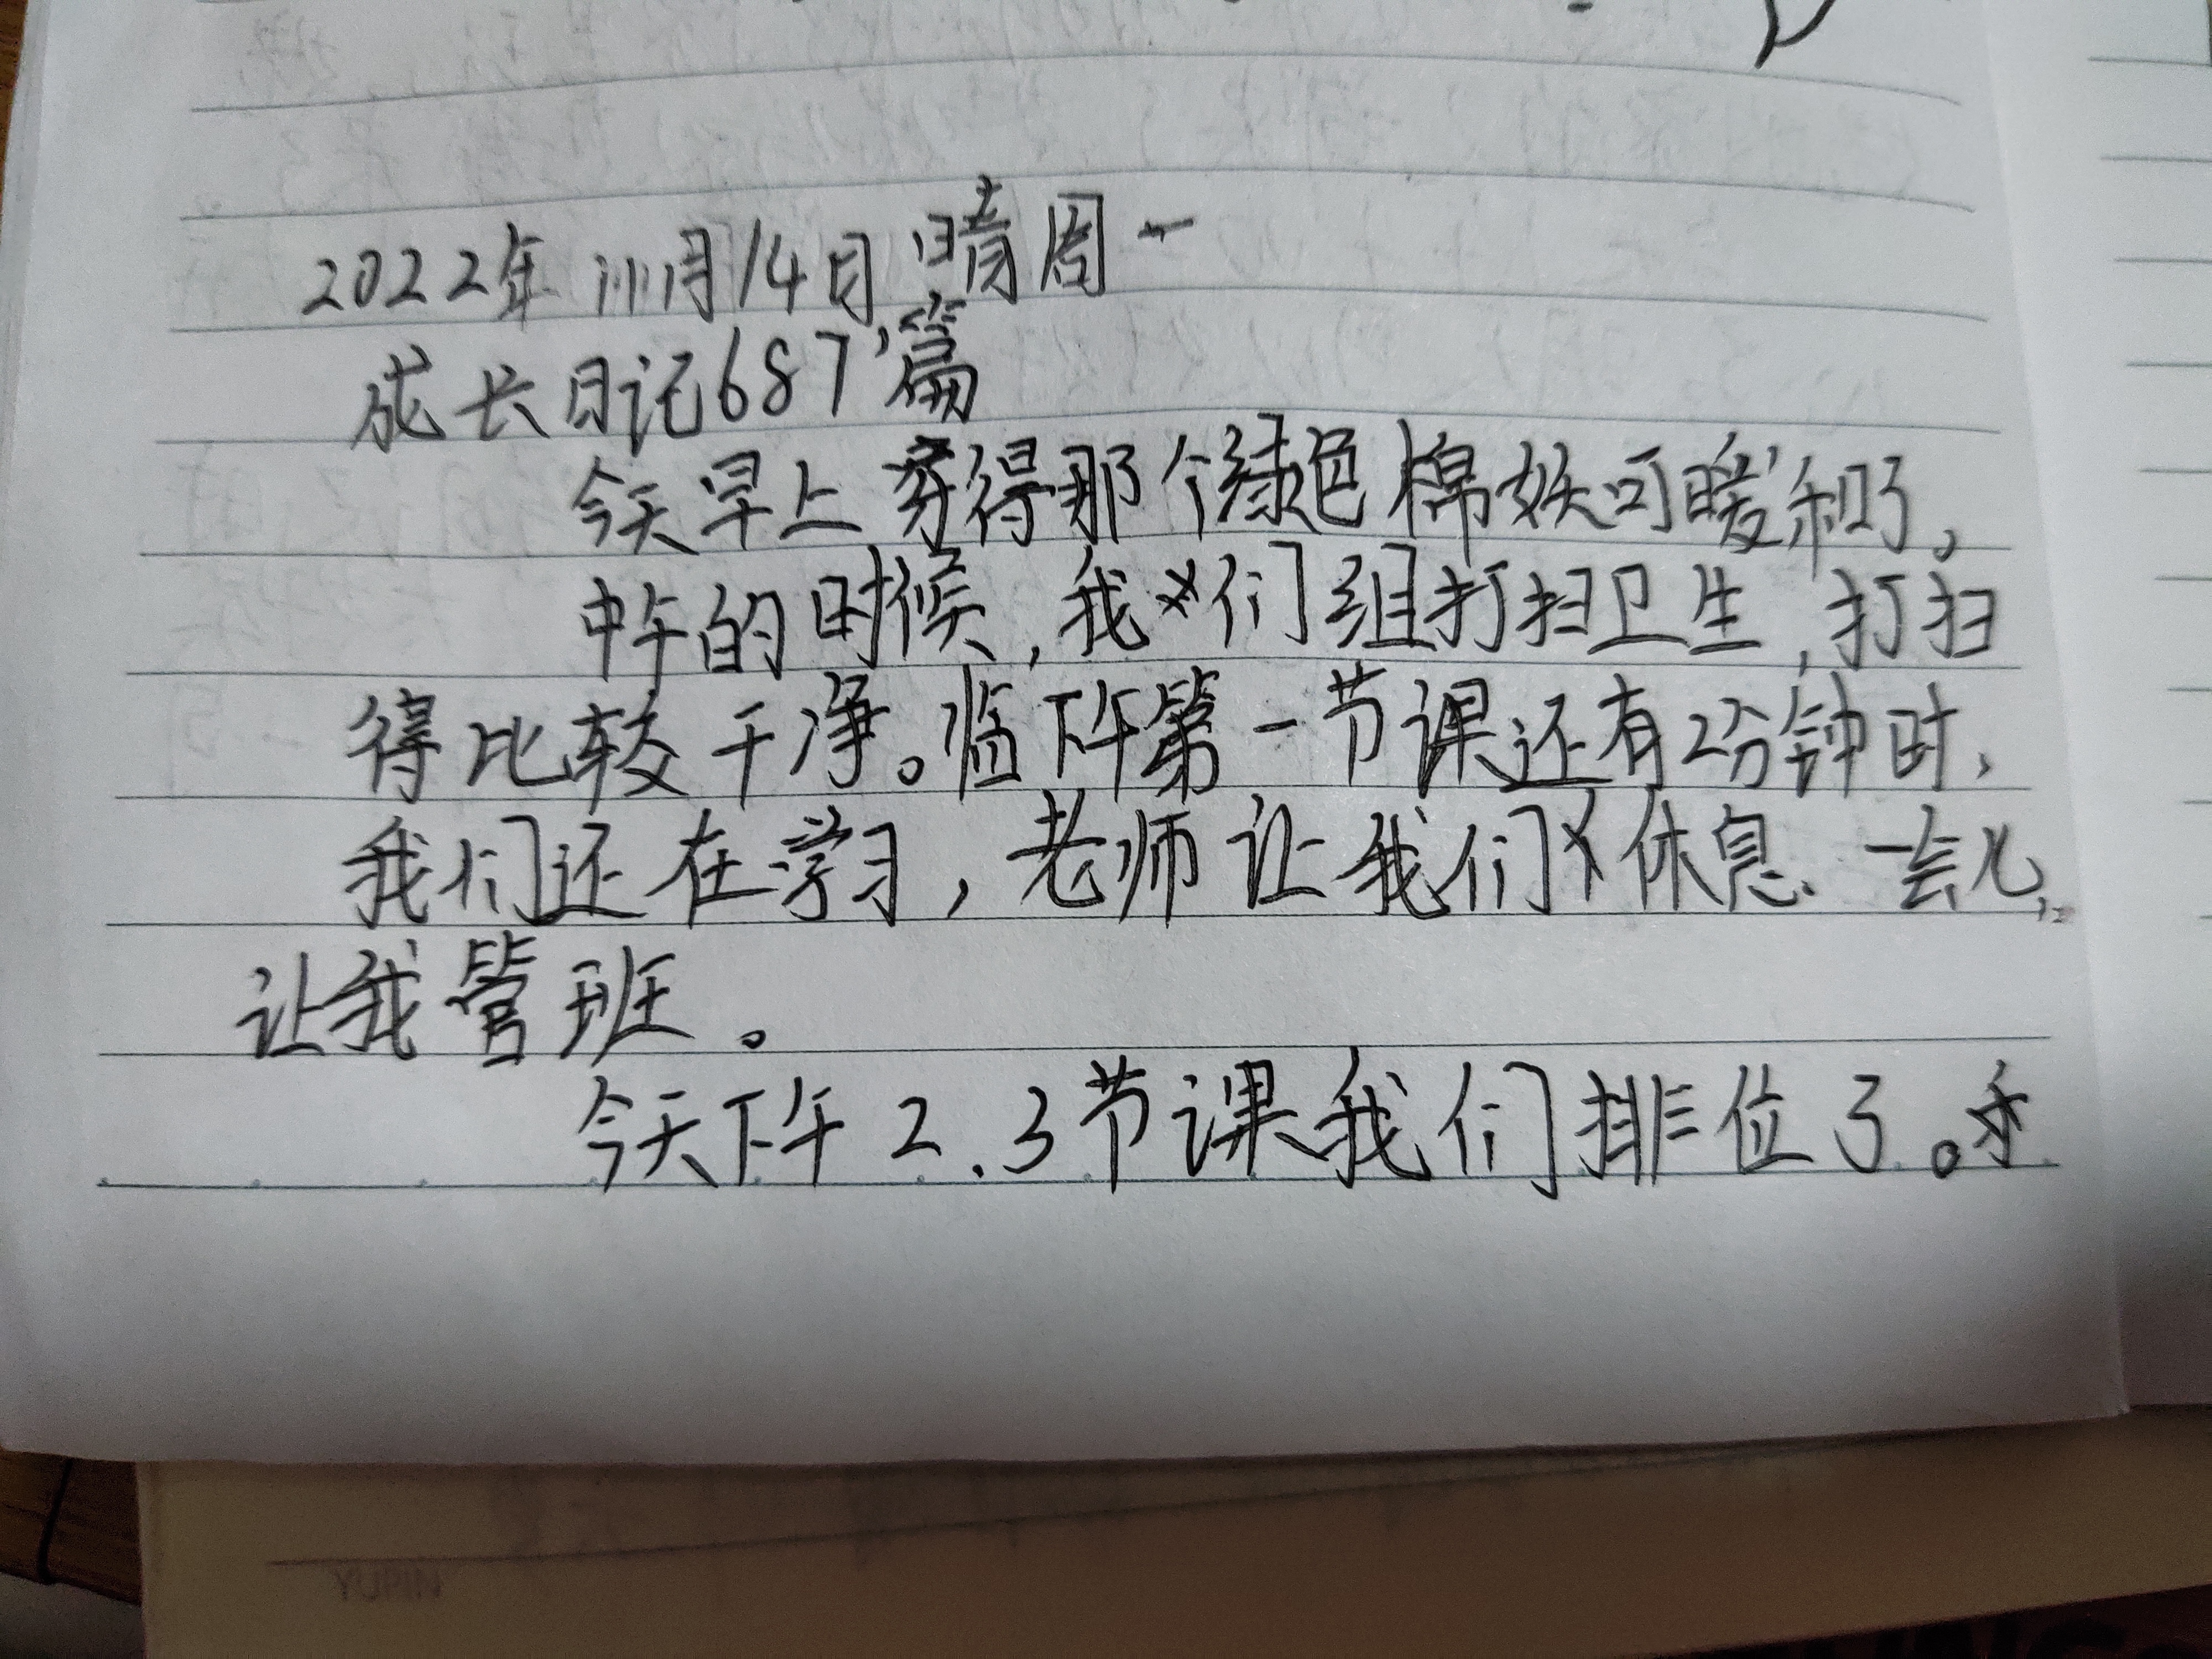 2022年11月14日 晴 周一
成长日记687篇
今天早上穿得那个绿色棉袄可暖和了。
中午的时候,我们组打扫卫生,打扫
得比较干净。临下午第一节课还有2分钟时,
我们还在学习,老师让我们休息一会儿,
让我管班。
今天下午2.3节课我们排位了。
YUPIN